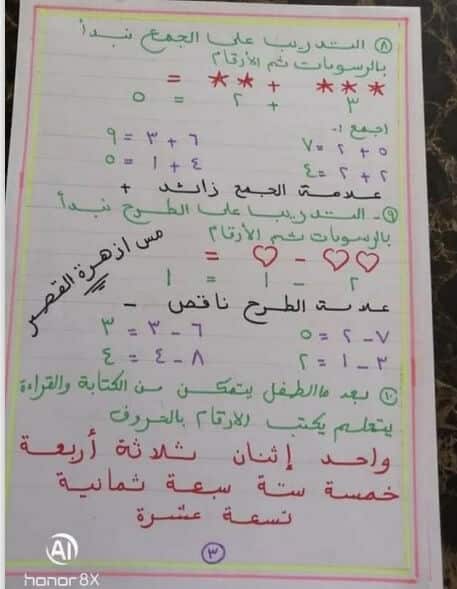 ٨ التدريب على الجمع نبدأ
بالرسومات ثم الأرقام
= ** + ***
٣ + ٢ = ٥
اجمع :-
٥ + ٢ = ٧ ٦ + ٣ = ٩
٢ + ٢ = ٤ ٤ + ١ = ٥
علامة الجمع زائد +
٩ - التدريب على الطرح نبدأ
بالرسومات ثم الأرقام
♡♡ - ♡ =
٢ - ١ = ١
علامة الطرح ناقص -
٧ - ٢ = ٥ ٦ - ٣ = ٣
٣ - ١ = ٢ ٨ - ٤ = ٤
مس ازهرة القصر
١٠ بعد ماالطفل يتمكن من الكتابة والقراءة
يتعلم يكتب الأرقام بالحروف
واحد إثنان ثلاثة أربعة
خمسة ستة سبعة ثمانية
تسعة عشرة
٣
AI
honor 8X